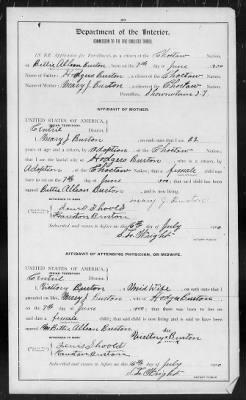 Department of the Interior.
COMMISSION TO THE FIVE CIVILIZED TRIBES.
IN RE Application for Enrollment, as a citizen of the Choctaw Nation,
of Billie Allean Burton, born on the 7th day of June
Name of Father: Hodges Burton, a citizen of the Choctaw Nation.
Name of Mother: Mary J Burton, a citizen of the Choctaw Nation.
Postoffice,
AFFIDAVIT OF MOTHER.
UNITED STATES OF AMERICA,
Central District.
I, Mary J Burton, on oath state that I am 22
years of age and a citizen, by adoption, of the Choctaw Nation;
that I am the lawful wife of Hodges Burton, who is a citizen, by
Adoption of the Choctaw Nation; that a female child
was born to me on the 7th day of June, that said child has been
named Billie Allean Burton, and is now living.
Mary J Burton
WITNESSES TO MARK:
Burton
Subscribed and sworn to before me this 16th day of July
Wright
NOTARY PUBLIC.
AFFIDAVIT OF ATTENDING PHYSICIAN, OR MIDWIFE.
UNITED STATES OF AMERICA,
Central District.
I, Burton, a Mid Wife, on oath state that I
attended on Mrs. Mary J Burton, wife of Hodges Burton
on the 7 day of June, that there was born to her on said date
a female child; that said child is now living and is said to have been
named Billie Allean Burton
Burton
WITNESSES TO MARK:
Burton
Subscribed and sworn to before me this 16th day of July
Wright
NOTARY PUBLIC.